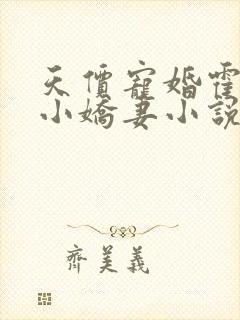 天價寵婚霍
小嬌妻小說
齊美義